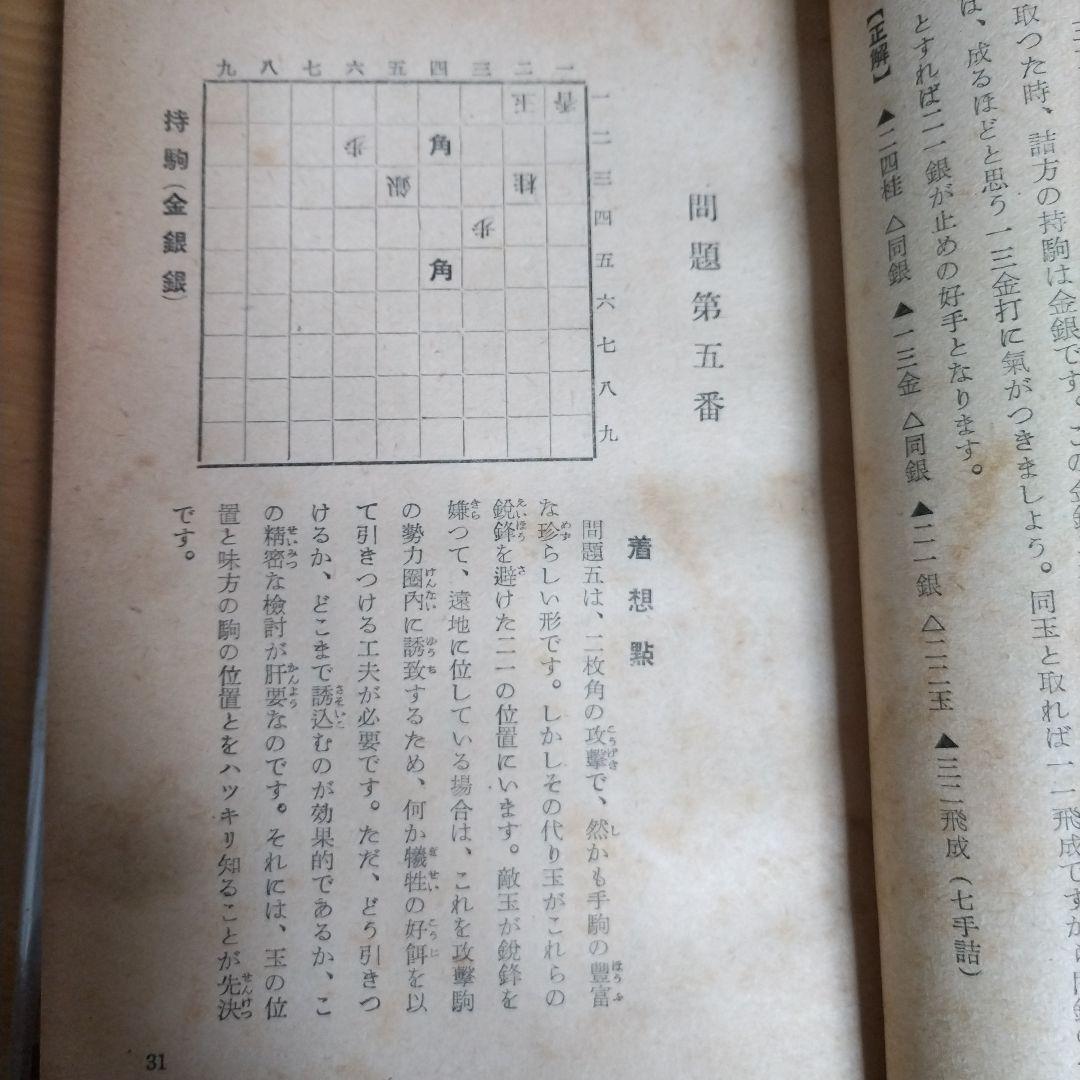 取つた時、詰方の持駒は金銀です。この金銀
は、成るほどと思う一三金打に氣がつきましよう。同玉と取れば一一飛成ですから
とすれば二一銀が止めの好手となります。
【正解】 ▲二四桂 △同銀 ▲一三金 △同銀 ▲二一銀 △二二玉 ▲三二飛成(七手詰)
問題第五番
九 八 七 六 五 四 三 二 一
玉 香
歩 角
銀 桂
歩
角
一
二
三
四
五
六
七
八
九
持駒(金銀銀)
着想點
問題五は、二枚角の攻擊で、然かも手駒の豐富
な珍らしい形です。しかしその代り玉がこれらの
銳鋒を避けた二一の位置にいます。敵玉が銳鋒を
嫌つて、遠地に位している場合は、これを攻擊駒
の勢力圈內に誘致するため、何か犧牲の好餌を以
て引きつける工夫が必要です。ただ、どう引きつ
けるか、どこまで誘込むのが効果的であるか、こ
の精密な檢討が肝要なのです。それには、玉の位
置と味方の駒の位置とをハツキリ知ることが先決
です。
31